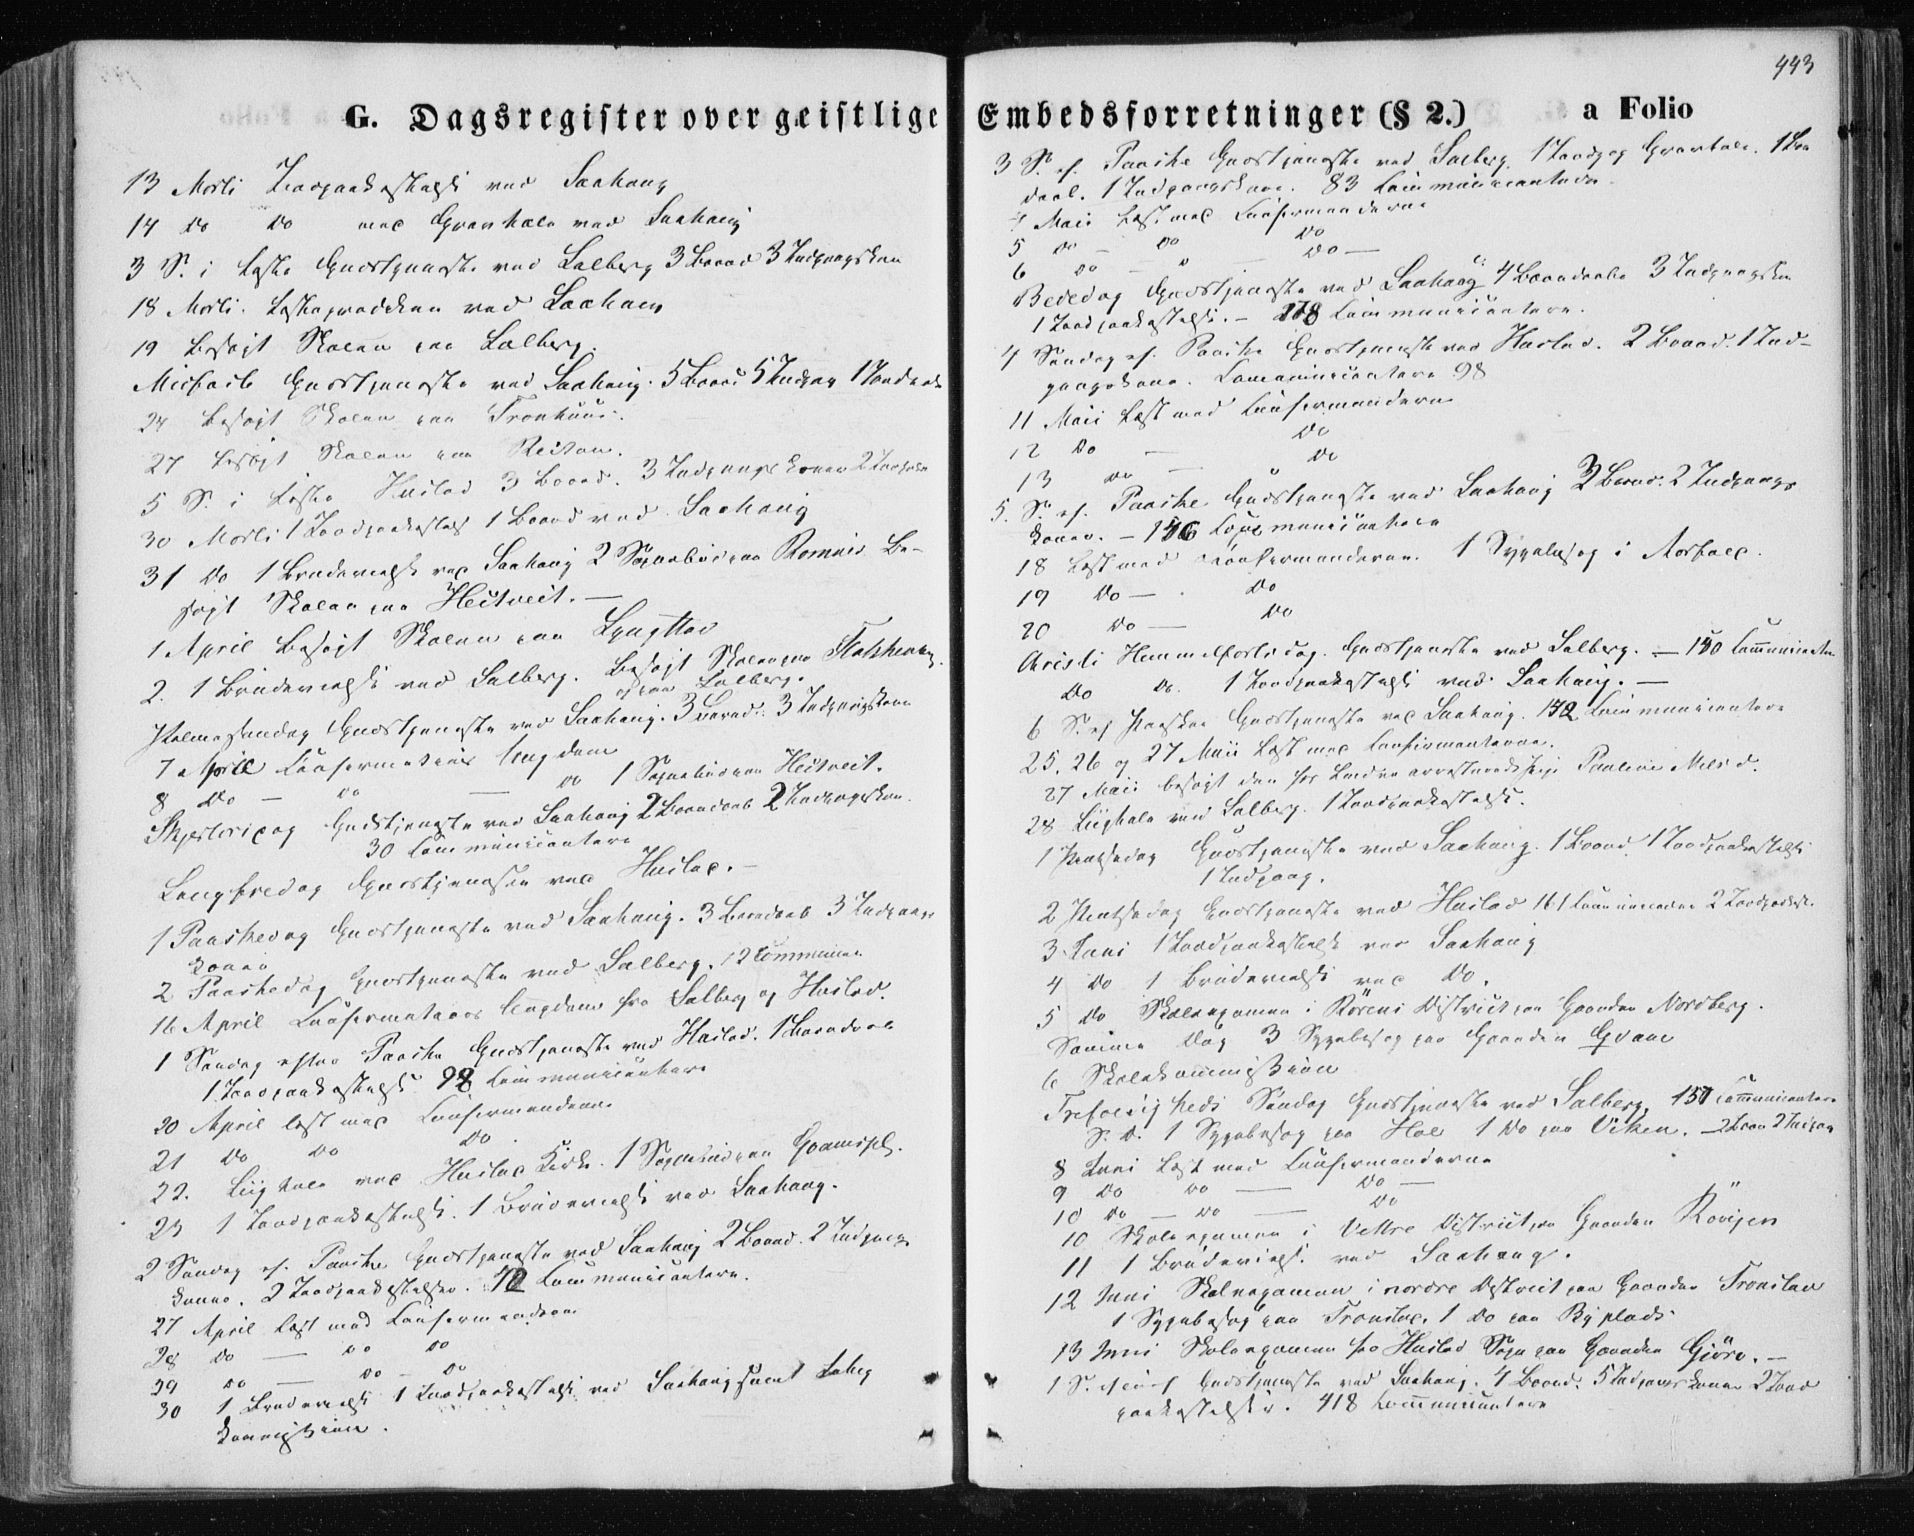 443
G. Dagsregister over geistlige Embedsforretninger (§ 2.) a Folio
13 Marti Jordpaakastelse ved Saxhaug
14 Do Do med Gravtale ved Saxhaug
3 S. i Faste Gudstjeneste ved Salberg 3 Barned 3 Indgangskon
18 Marti. Fasteprædiken ved Saxhaug
19 Besøgt Skolen paa Salberg.
Midfaste Gudstjeneste ved Saxhaug. 5 Barnd 5 Indgan 1 Jordpaak
24 Besøgt Skolen paa Tronhuus.
27 Besøgt Skolen paa Reitan.
5 S. i Faste Hustad 3 Barnd. 3 Indgangskoner 2 Jordpaak
30 Marti 1 Jordpaakastels 1 Barnd ved Saxhaug
31 Do 1 Brudevielse ved Saxhaug 2 Sognebud paa Romnes Be-
søgt Skolen paa Heitveit. —
1 April Besøgt Skolen paa Lyngstad
2. 1 Brudevielse ved Salberg. Besøgt Skolen paa
og paa Salberg.
Palmesøndag Gudstjeneste ved Saxhaug. 3 Barnd. 3 Indgangskone
7 April Confirmations Ungdom
8 Do — Do — Do 1 Sognebud paa Heitveit.
Skjertorsdag Gudstjeneste ved Saxhaug 2 Barnedaab 2 Indgangskon.
30 Communicantere
Langfredag Gudstjenesten ved Hustad. —
1 Paaskedag Gudstjeneste ved Saxhaug. 3 Barndaab 3 Indgangs
koner
2 Paaskedag Gudstjeneste ved Salberg. 12 Communican
16 April Confirmations Ungdom fra Salberg og Hustad.
1 Søndag efter Paaske Gudstjeneste ved Hustad. 1 Barndaab
1 Jordpaakastelse 98 Communicantere
20 April læst med Confirmanderne
21 Do Do Do.
22. Liigtale ved Hustad Kirke. 1 Sognebud paa
23 1 Jordpaakastelse. 1 Brudevielse ved Saxhaug.
2 Søndag ef. Paaske Gudstjeneste ved Saxhaug 2 Barnd. 2 Indgangs
koner. 2 Jordpaakastelser. 72 Communicantere.
27 April Læst med Confirmanderne
28 Do — Do Do
29 Do — Do — Do
30 1 Brudevielse 1 Jordpaakastelse ved Saxhaug samt
kommission.
3 S. ef. Paaske Gudstjeneste ved Salberg. 1 Jordp og Gravtale. 1 Bar
daab. 1 Indgangskone. 83 Communicantere.
4 Maii Læst med Confirmanderne
5 Do — Do Do
6 Do — " Do —
Bededag Gudstjeneste ved Saxhaug 4 Barndaabe 3 Indgangskon
1 Jordpaakastelse. — 178 Communicantere.
4 Søndag ef. Paaske Gudstjeneste ved Hustad. 2 Barnd. 1 Ind-
gangskone. Communicantere 98
11 Maii Læst med Confirmanderne
12 Do — Do
13 Do — " Do
5. S. ef. Paaske Gudstjeneste ved Saxhaug 3 Barnd. 2 Indgangs
koner. — 146 Communicantere
18 Læst med Confirmanderne. 1 Sygebesøg i
19 Do — . Do
20 Do — Do
Christi Himmelfartsdag. Gudstjeneste ved Salberg. — 150 Communicantere
Do Do. 1 Jordpaakastelse ved Saxhaug. —
6 S. ef Paaske Gudstjeneste ved Saxhaug. 152 Communicantere
25, 26 og 27 Maii Læst med Confirmanderne.
27 Maii besøgt den hos Lensm arresterede Pige Pauline
28 Liigtale ved Salberg. 1 Jordpaakastelse.
1 Pintsedag Gudstjeneste ved Saxhaug. 1 Barnd 1 Jordpaakastelse
1 Indgang.
2 Pintsedag Gudstjeneste ved Hustad 161 Communicantere 2 Jordpaakast.
3 Juni 1 Jordpaakastelse ved Saxhaug
4 Do 1 Brudevielse ved Do.
5 Do Skoleexamen i Rörens District paa Gaarden Nordberg.
Samme Dag 3 Sygebesøg paa Gaarden Qvam
6 Skolekommission
Trefoldigheds Søndag Gudstjeneste ved Salberg. 157 Communicantere
S. D. 1 Sygebesøg paa Hol 1 Do paa Viken. — 2 Barn 2 Indgan
8 Juni Læst med Confirmanderne
9 Do Do — Do —
10 Do — Do — Do
10 Skoleexamen i Vestre District paa Gaarden Rövjen
11 1 Brudevielse ved Saxhaug.
12 Juni Skoleexamen i nordre District paa Gaarden Tronstad
1 Sygebesøg paa Tronstad. 1 Do paa Byplads
13 Juni Skoleexamen for Hustad Sogn paa Gaarden Gjörv. —
1 S. ef Trinit Gudstjeneste ved Saxhaug. 4 Barnd. 5 Indgangskoner 2 Jord
paakastelser. 418 Communicantere